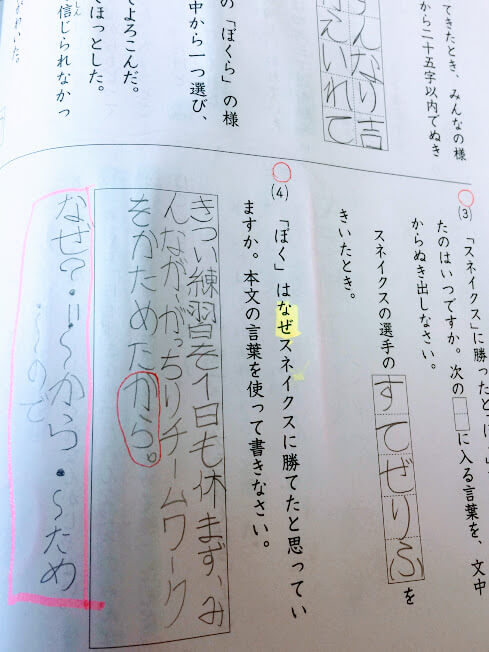 てきたとき、みんなの様
から二十五字以内でぬき
んなり吉
えいれて
の「ぼくら」の様
中から一つ選び、
てよろこんだ。
てほっとした。
信じられなかっ
(3) 「スネイクス」に勝ったと
たのはいつですか。次の□に入る言葉を、文中
からぬき出しなさい。
スネイクスの選手のすてぜりふを
きいたとき。
(4) 「ぼく」はなぜスネイクスに勝てたと思ってい
ますか。本文の言葉を使って書きなさい。
きつい練習を1日も休まず、み
んなが、がっちりチームワーク
をかためたから。
なぜ?・〃〜から・〜ため
・〜ので